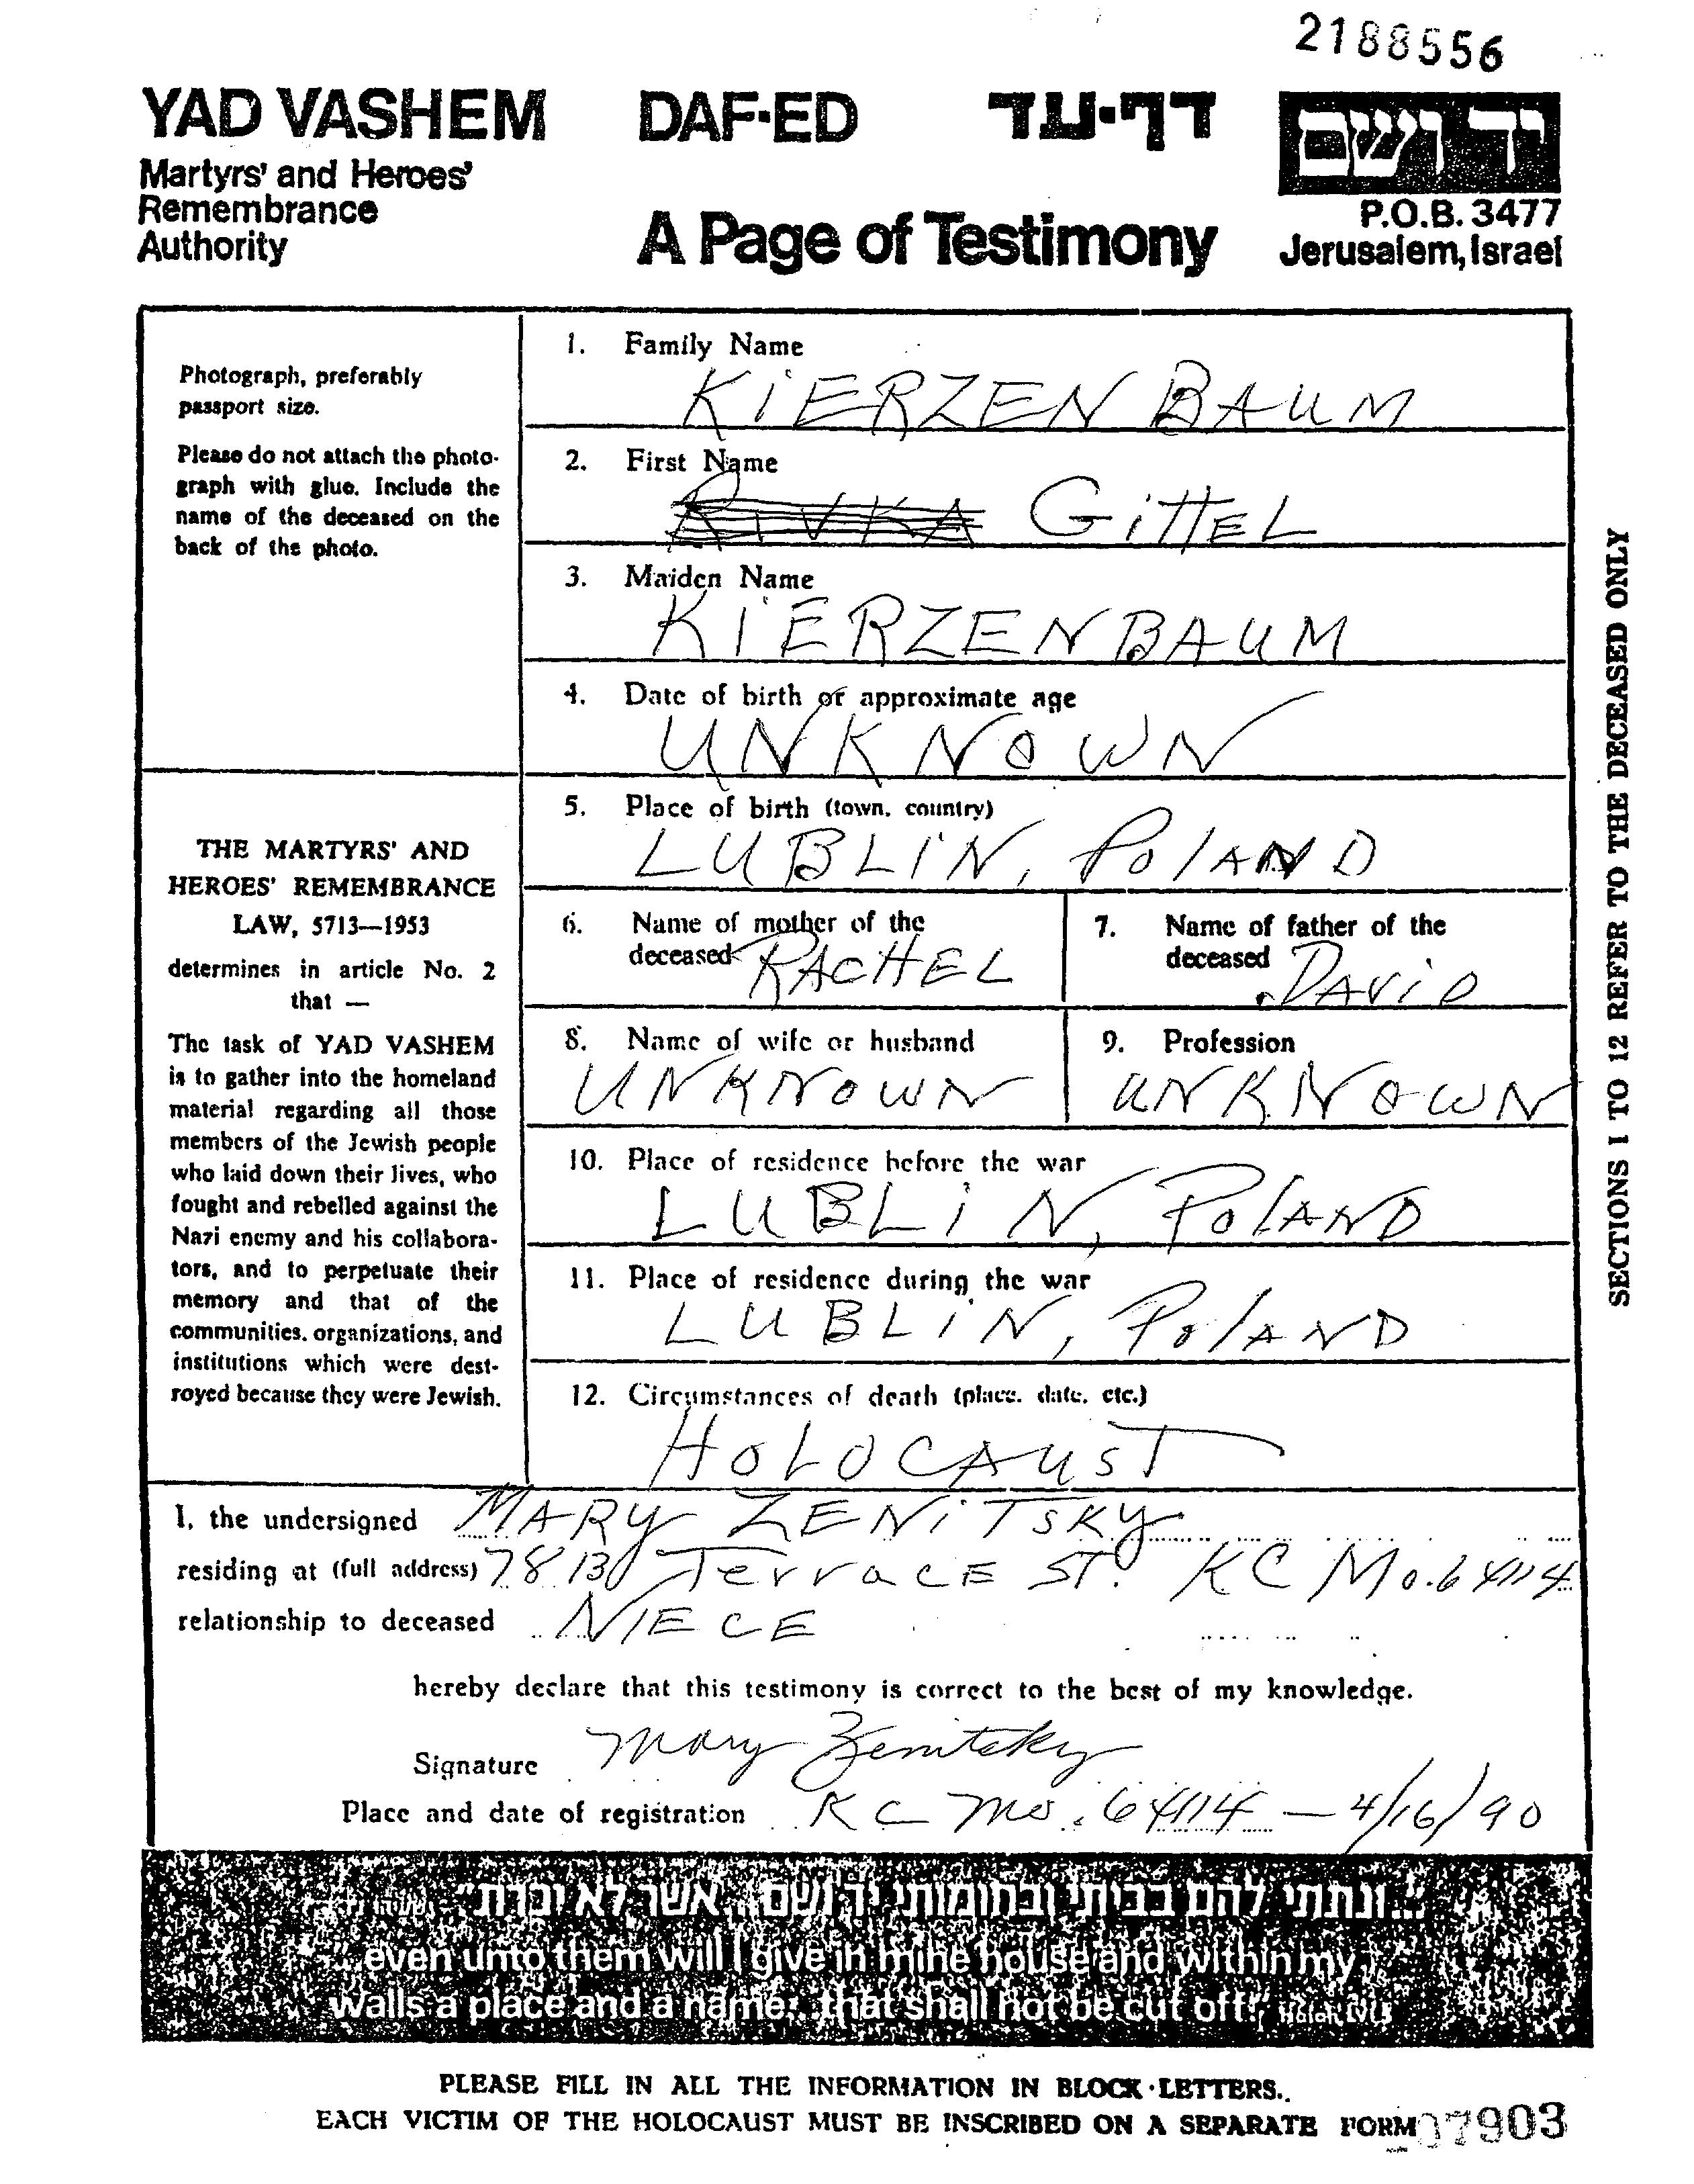 2188556
YAD VASHEM DAF-ED דף-עד ידושם
Martyrs' and Heroes'
Remembrance
Authority
A Page of Testimony
P.O.B. 3477
Jerusalem, Israel
Photograph, preferably
passport size.
Please do not attach the photo-
graph with glue. Include the
name of the deceased on the
back of the photo.
THE MARTYRS' AND
HEROES' REMEMBRANCE
LAW, 5713—1953
determines in article No. 2
that —
The task of YAD VASHEM
is to gather into the homeland
material regarding all those
members of the Jewish people
who laid down their lives, who
fought and rebelled against the
Nazi enemy and his collabora-
tors, and to perpetuate their
memory and that of the
communities, organizations, and
institutions which were dest-
royed because they were Jewish.
1. Family Name
KIERZENBAUM
2. First Name
RIVKA GITTEL
3. Maiden Name
KIERZENBAUM
4. Date of birth or approximate age
UNKNOWN
5. Place of birth (town, country)
LUBLIN, POLAND
6. Name of mother of the
deceased RACHEL
7. Name of father of the
deceased DAVID
8. Name of wife or husband
UNKNOWN
9. Profession
UNKNOWN
10. Place of residence before the war
LUBLIN, POLAND
11. Place of residence during the war
LUBLIN, POLAND
12. Circumstances of death (place, date, etc.)
HOLOCAUST
SECTIONS 1 TO 12 REFER TO THE DECEASED ONLY
I, the undersigned MARY ZENITSKY
residing at (full address) 7813 Terrace ST. KC Mo. 64114
relationship to deceased NIECE
hereby declare that this testimony is correct to the best of my knowledge.
Signature Mary Zenitsky
Place and date of registration KC Mo. 64114 – 4/16/90
"...ונתתי להם בביתי ובחומותי יד ושם... אשר לא יכרת"
"...even unto them will I give in mine house and within my
walls a place and a name... that shall not be cut off."
PLEASE FILL IN ALL THE INFORMATION IN BLOCK LETTERS.
EACH VICTIM OF THE HOLOCAUST MUST BE INSCRIBED ON A SEPARATE FORM
07903